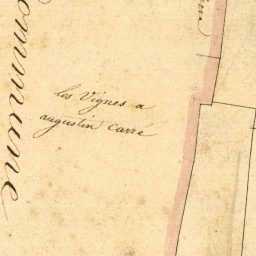 ommune
les Vignes a
augustin Carré